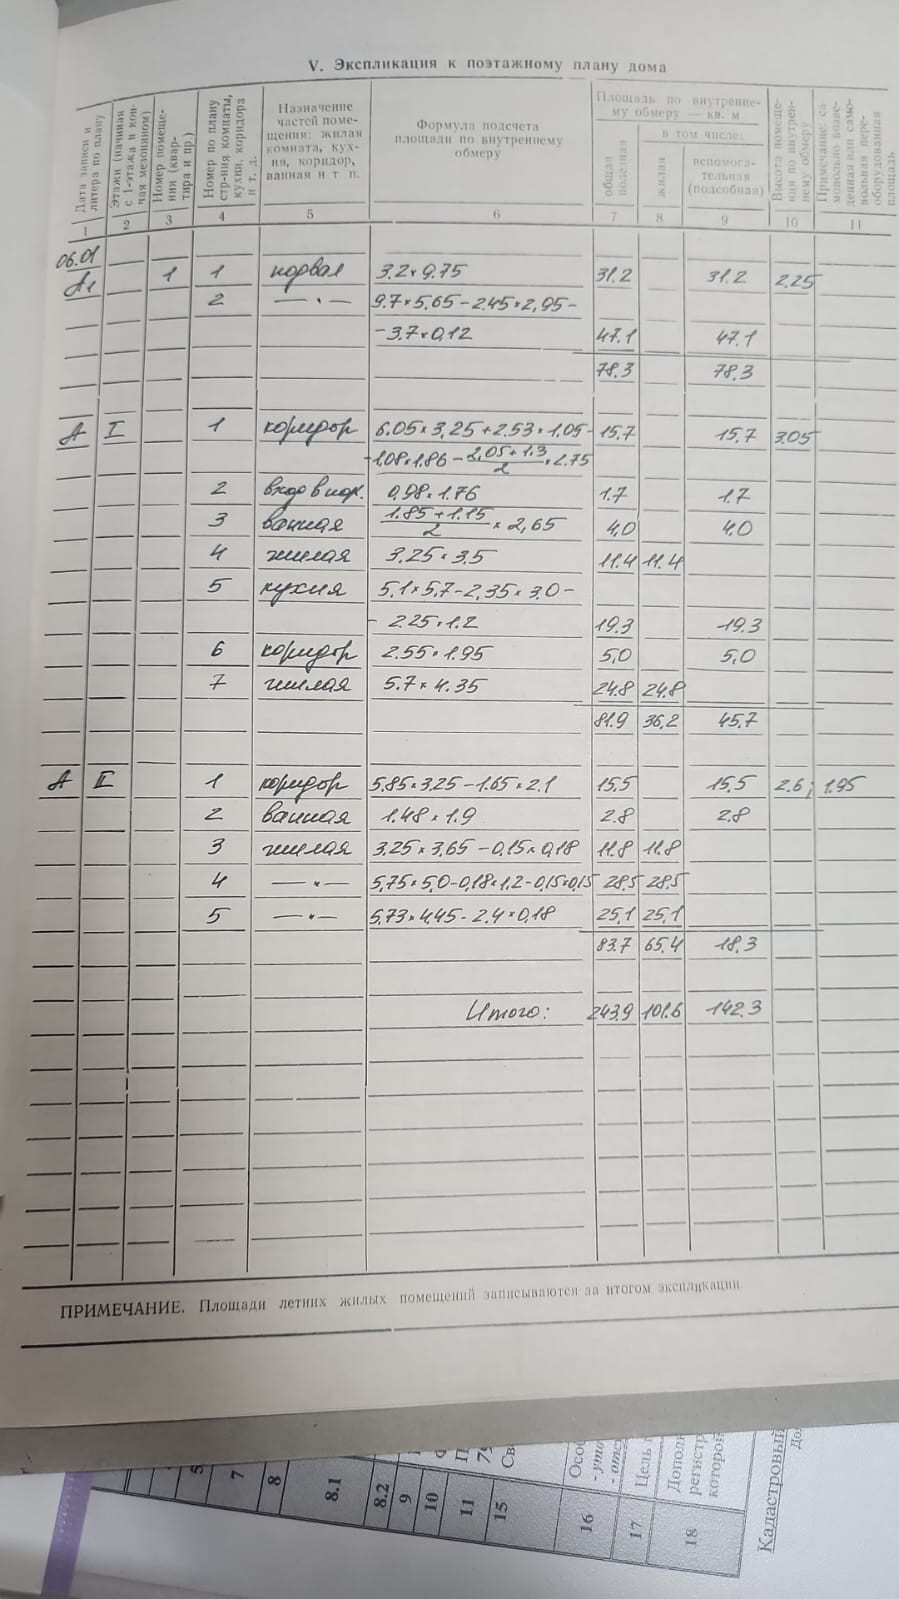 V. Экспликация к поэтажному плану дома
Дата записи и литера по плану
Этажи (начиная с 1-этажа и кончая мезонином)
Номер помещения (квартира и пр.)
Номер по плану стр-ния комнаты, кухни, коридора и т. д.
Назначение частей помещения: жилая комната, кухня, коридор, ванная и т п.
Формула подсчета площади по внутреннему обмеру
Площадь по внутреннему обмеру — кв. м
общая полезная
в том числе:
жилая
вспомогательная (подсобная)
Высота помещения по внутреннему обмеру
Примечание: самовольно возведенная или самовольная переоборудованная площадь
1 2 3 4 5 6 7 8 9 10 11
06.01
А1 1 1 подвал 3.2×9.75 31.2 31.2 2.25
2 —〃— 9.7×5.65-2.45×2,95-
-3.7×0,12 47.1 47.1
78.3 78.3
А I 1 коридор 6.05×3,25+2.53×1.05- 15.7 15.7 3.05
-1.08×1.86-(2,05+1.3)/2×2.75
2 вход в под. 0,98×1.76 1.7 1.7
3 ванная (1.85+1.15)/2×2,65 4,0 4,0
4 жилая 3.25×3.5 11.4 11.4
5 кухня 5,1×5,7-2,35×3.0-
- 2.25×1.2 19.3 19.3
6 коридор 2.55×1.95 5,0 5,0
7 жилая 5.7×4.35 24.8 24.8
81.9 36,2 45.7
А II 1 коридор 5.85×3.25-1.65×2.1 15.5 15.5 2.6; 1.95
2 ванная 1.48×1.9 2.8 2.8
3 жилая 3.25×3,65-0,15×0,18 11.8 11.8
4 —〃— 5,75×5,0-0,18×1,2-0,15×0,15 28,5 28,5
5 —〃— 5,73×4,45-2.4×0,18 25,1 25,1
83.7 65.4 18,3
Итого: 243.9 101.6 142.3
ПРИМЕЧАНИЕ. Площади летних жилых помещений записываются за итогом экспликации.
7
8
8.1
8.2
9
10
11
15
16
17
18
Цель
Кадастровый